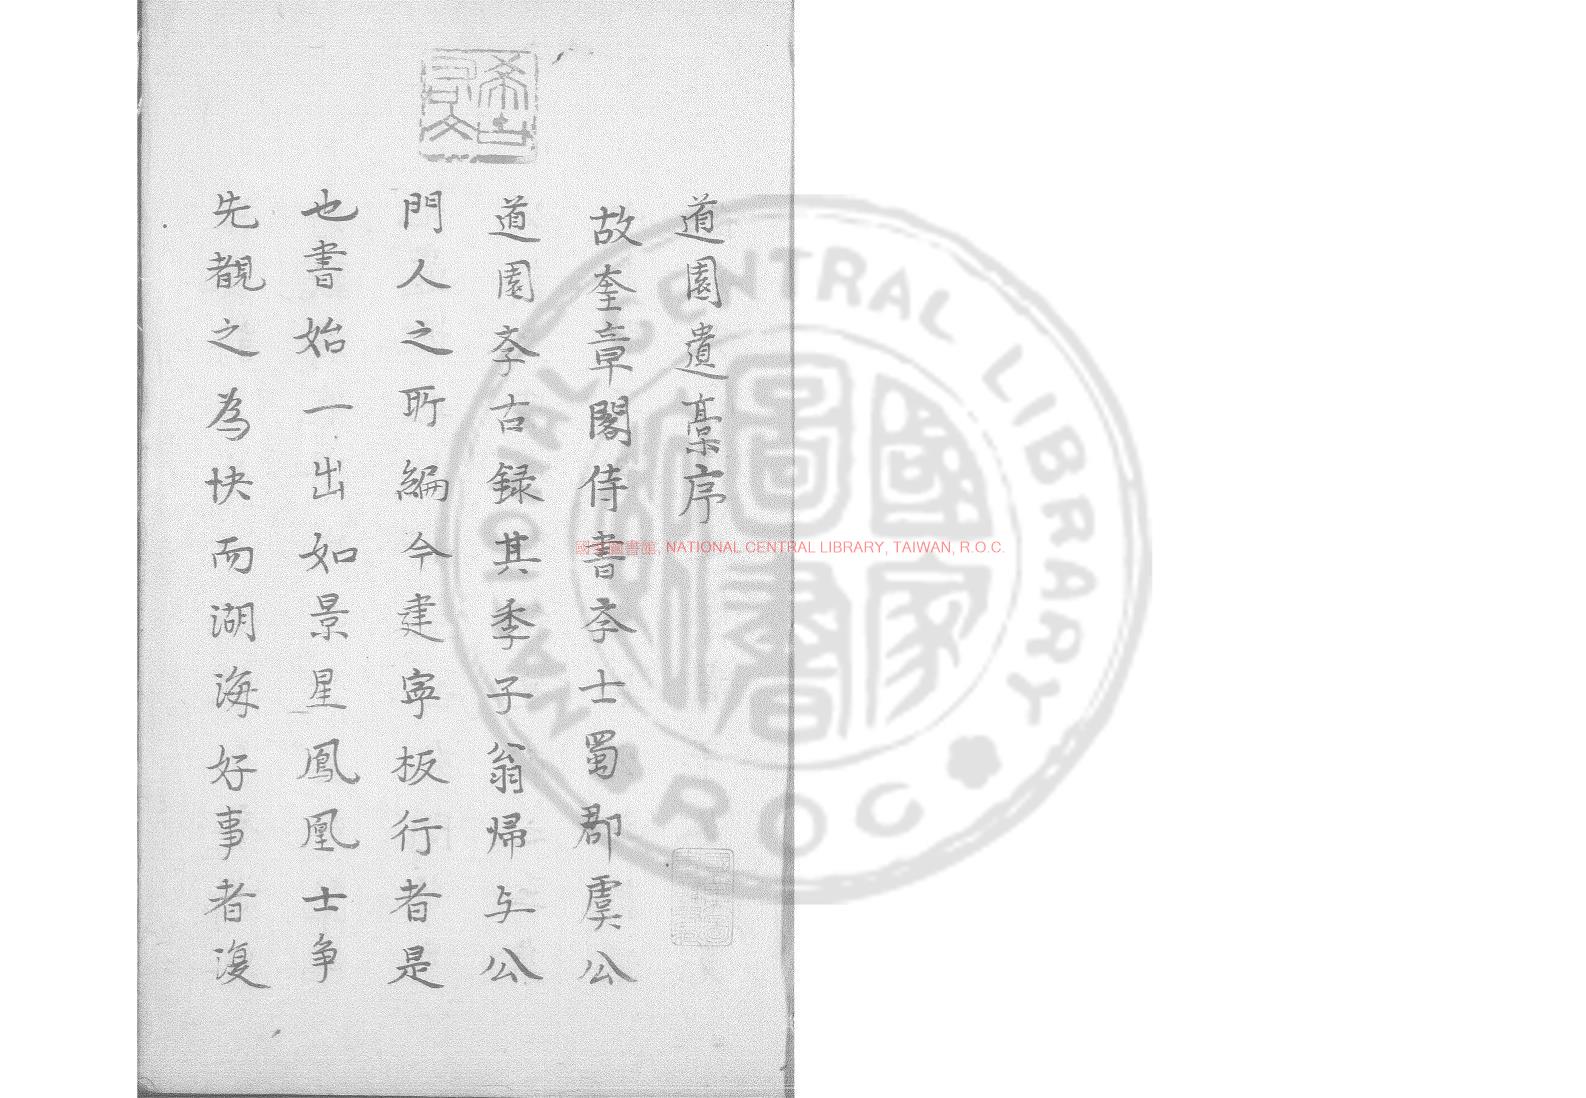 希古右文
道園遺稾序
故奎章閣侍書斈士蜀郡虞公
道園斈古録其季子翁帰与公
門人之所編今建寧板行者是
也書始一出如景星鳳凰士争
先覩之為快而湖海好事者復
國家圖書館, NATIONAL CENTRAL LIBRARY, TAIWAN, R.O.C.
NATIONAL CENTRAL LIBRARY
ROC
國家圖書